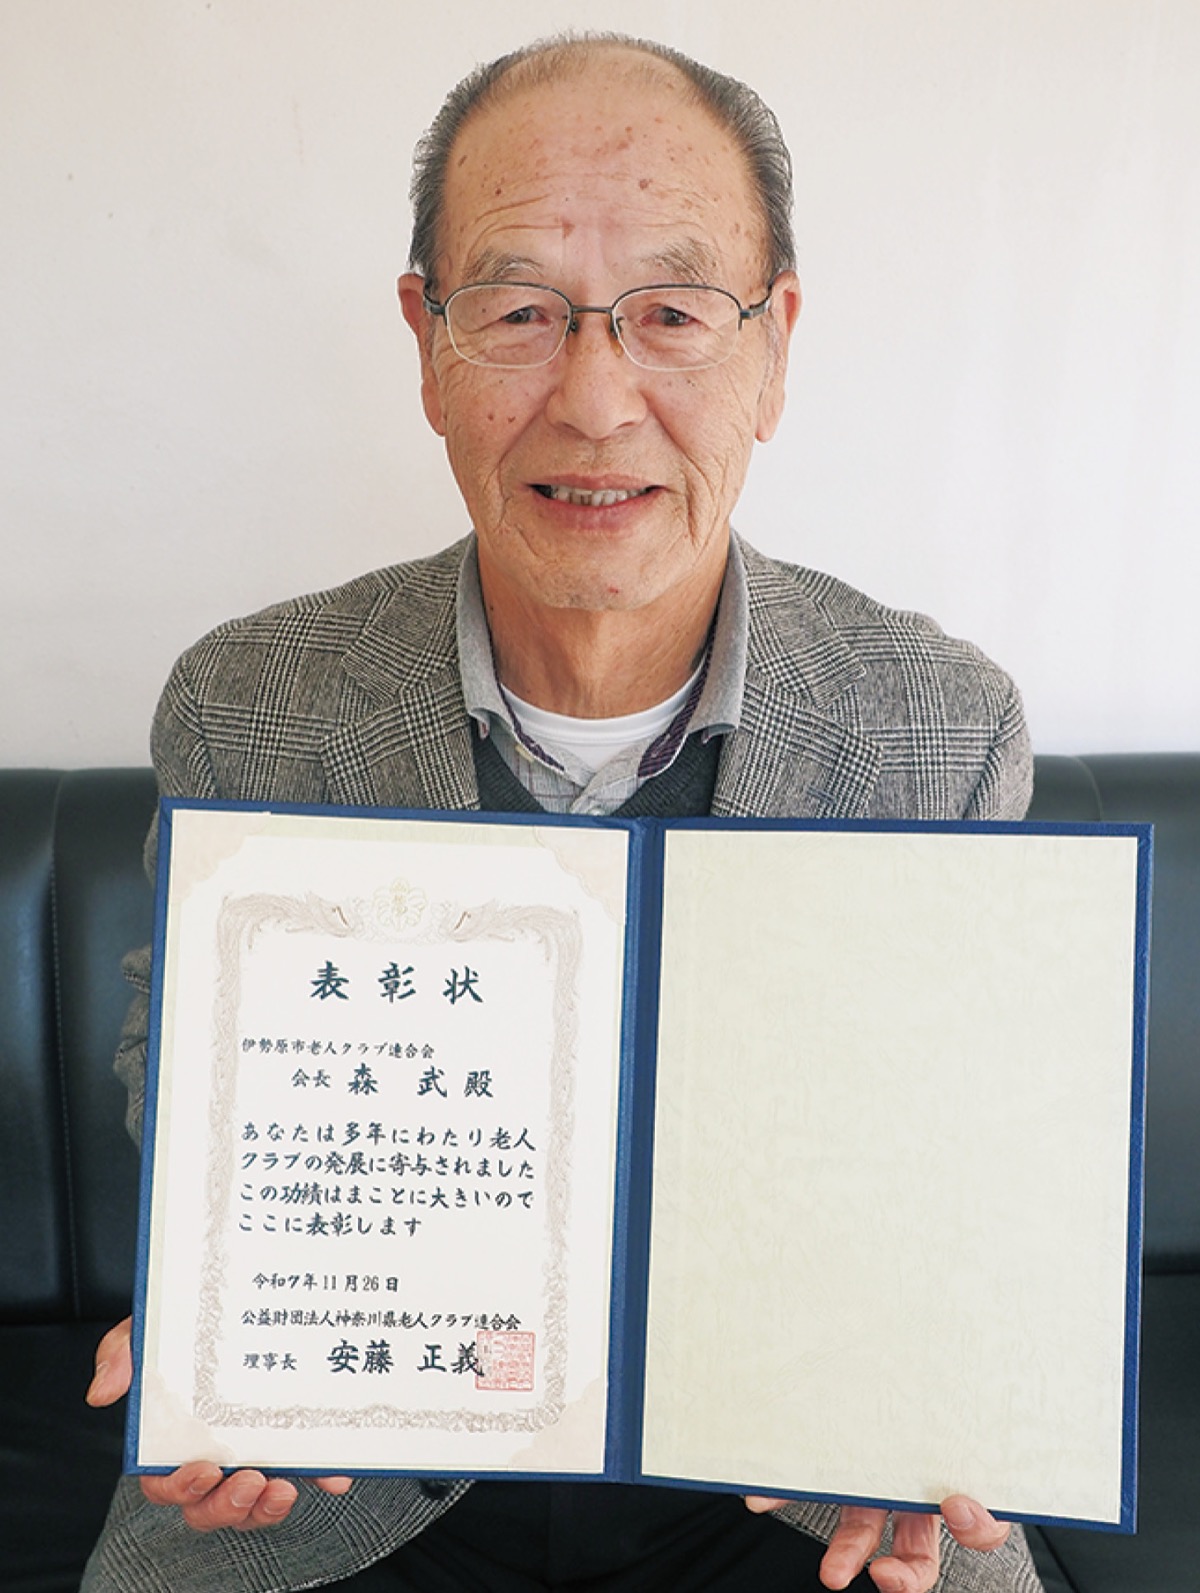 表彰状
伊勢原市老人クラブ連合会
会長 森 武 殿
あなたは多年にわたり老人
クラブの発展に寄与されました
この功績はまことに大きいので
ここに表彰します
令和7年11月26日
公益財団法人神奈川県老人クラブ連合会
理事長 安藤 正義